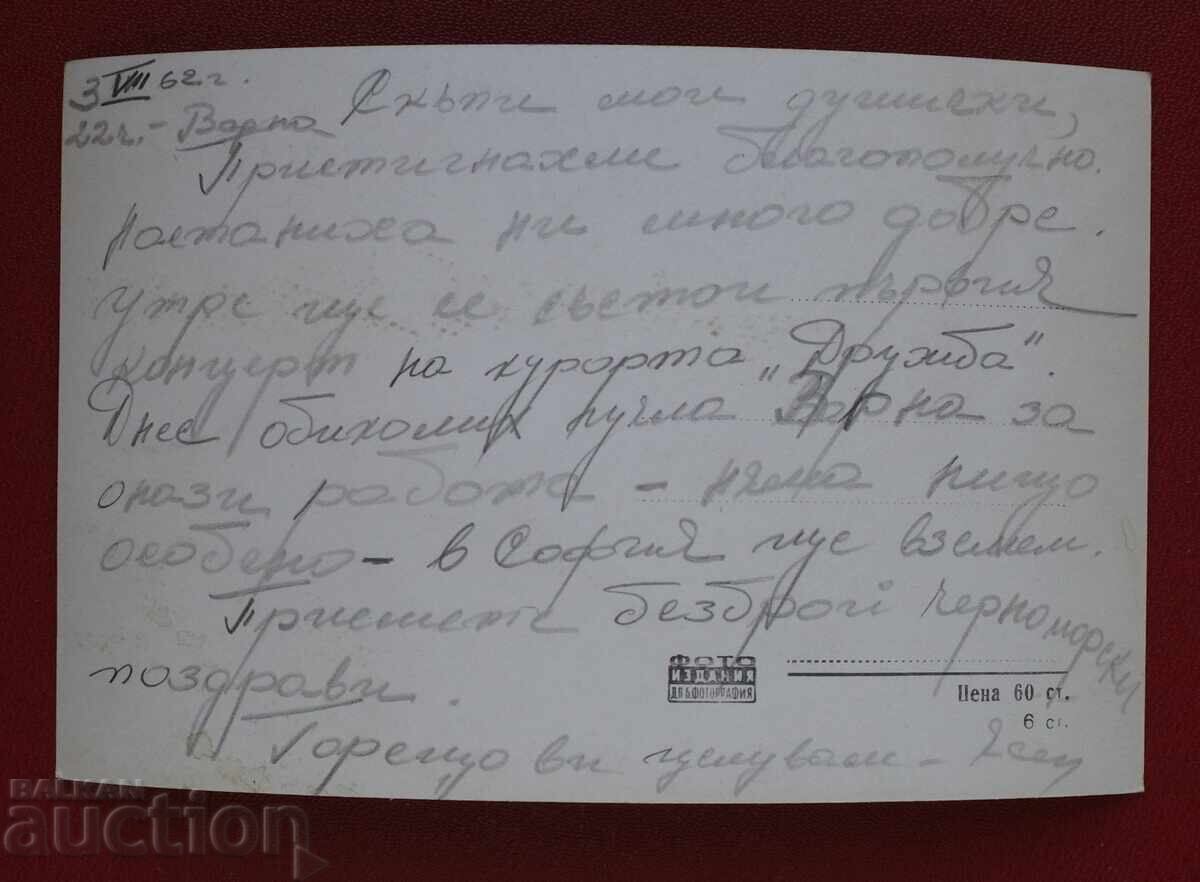 3 VIII 62 г.
22 ч. - Варна Скъпи мои душички,
Пристигнахме благополучно.
Настаниха ни много добре.
Утре ще се състои първия
концерт на курорта "Дружба".
Днес обиколих пучла Варна за
онази работа - няма нищо
особено - в София ще вземем.
Приемете безброй Черноморски
поздрави.
Горещо ви целувам -
ФОТО
ИЗДАНИЯ
ДП БЪЛФОТОГРАФИЯ
Цена 60 ст.
6 ст.
BALKAN
auction